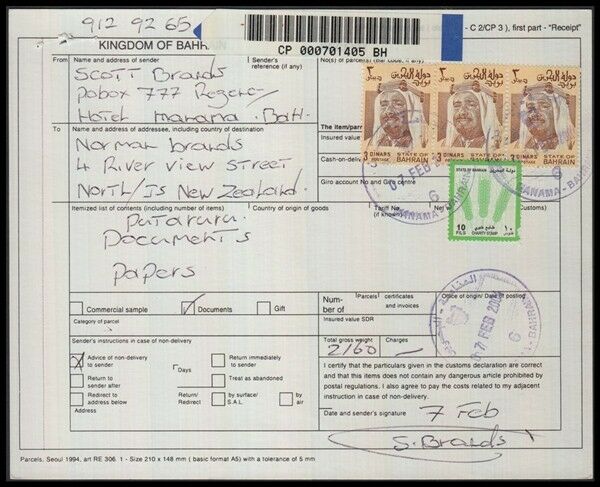 912 92 65
CP 000701405 BH
- C 2/CP 3 ), first part - "Receipt"
KINGDOM OF BAHRAIN
From
Name and address of sender
Scott Brands
pobox 777 Regency
Hotel manama . Bah.
Sender's
reference (if any)
No(s) of parcel(s)
To
Name and address of addressee, including country of destination
Norman brands
4 River view Street
North/Is New Zealand.
The item/parcel
Insured value
Cash-on-delivery
Giro account No and Giro centre
دولة البحرين
دينار
٣
3 DINARS
POSTAGE
STATE OF
BAHRAIN
دولة البحرين
دينار
٣
3 DINARS
POSTAGE
STATE OF
BAHRAIN
دولة البحرين
دينار
٣
3 DINARS
POSTAGE
STATE OF
BAHRAIN
07 FEB
6
MANAMA - BAHRAIN
MANAMA - BA
STATE OF BAHRAIN
دولة البحرين
10
FILS
CHARITY STAMP
١٠
فلوس
Itemized list of contents (including number of items)
Country of origin of goods
Tariff No
(if known)
Net
Customs)
Putaruru.
Documents
papers
Commercial sample
Documents
Gift
Category of parcel
Num-
ber of
Parcels
certificates
and invoices
Office of origin/ Date of posting
Insured value SDR
07 FEB
6
BAHRAIN
Sender's instructions in case of non-delivery
Total gross weight
2160
Charges
Advice of non-delivery
to sender
Days
Return immediately
to sender
Return to
sender after
Treat as abandoned
Redirect to
address below
Return/
Redirect
by surface/
S.A.L
by air
Address
I certify that the particulars given in the customs declaration are correct
and that items does not containing any dangerous article prohibited by
postal regulations. I also agree to pay the costs related to my adjacent
instruction in case of non-delivery.
Date and sender's signature
7 Feb
S. Brands
Parcels, Seoul 1994, art RE 306. 1 - Size 210 x 148 mm ( basic format A5) with a tolerance of 5 mm